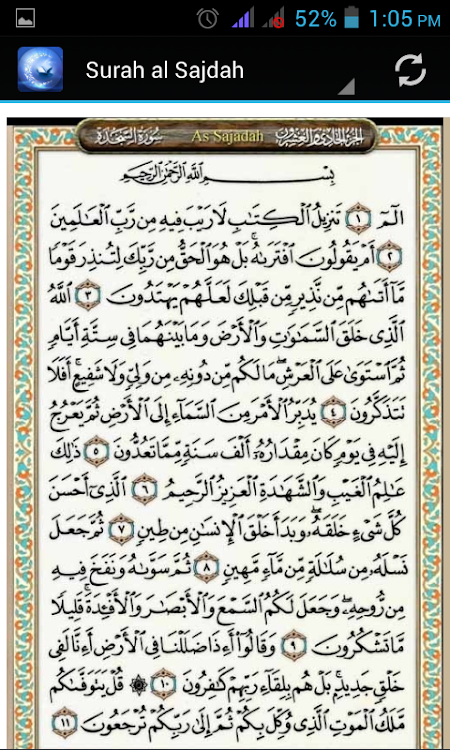 52% 1:05 PM
Surah al Sajdah
سورة السجدة As Sajadah الجزء الحادي والعشرون
بِسْمِ اللَّهِ الرَّحْمَٰنِ الرَّحِيمِ
الٓمٓ ١ تَنزِيلُ الْكِتَابِ لَا رَيْبَ فِيهِ مِن رَّبِّ الْعَالَمِينَ
٢ أَمْ يَقُولُونَ افْتَرَاهُ ۚ بَلْ هُوَ الْحَقُّ مِن رَّبِّكَ لِتُنذِرَ قَوْمًا
مَّا أَتَاهُم مِّن نَّذِيرٍ مِّن قَبْلِكَ لَعَلَّهُمْ يَهْتَدُونَ ٣ اللَّهُ
الَّذِي خَلَقَ السَّمَاوَاتِ وَالْأَرْضَ وَمَا بَيْنَهُمَا فِي سِتَّةِ أَيَّامٍ
ثُمَّ اسْتَوَىٰ عَلَى الْعَرْشِ ۖ مَا لَكُم مِّن دُونِهِ مِن وَلِيٍّ وَلَا شَفِيعٍ ۚ أَفَلَا
تَتَذَكَّرُونَ ٤ يُدَبِّرُ الْأَمْرَ مِنَ السَّمَاءِ إِلَى الْأَرْضِ ثُمَّ يَعْرُجُ
إِلَيْهِ فِي يَوْمٍ كَانَ مِقْدَارُهُ أَلْفَ سَنَةٍ مِّمَّا تَعُدُّونَ ٥ ذَٰلِكَ
عَالِمُ الْغَيْبِ وَالشَّهَادَةِ الْعَزِيزُ الرَّحِيمُ ٦ الَّذِي أَحْسَنَ
كُلَّ شَيْءٍ خَلَقَهُ ۖ وَبَدَأَ خَلْقَ الْإِنسَانِ مِن طِينٍ ٧ ثُمَّ جَعَلَ
نَسْلَهُ مِن سُلَالَةٍ مِّن مَّاءٍ مَّهِينٍ ٨ ثُمَّ سَوَّاهُ وَنَفَخَ فِيهِ
مِن رُّوحِهِ ۖ وَجَعَلَ لَكُمُ السَّمْعَ وَالْأَبْصَارَ وَالْأَفْئِدَةَ ۚ قَلِيلًا
مَّا تَشْكُرُونَ ٩ وَقَالُوا أَءِذَا ضَلَلْنَا فِي الْأَرْضِ أَءِنَّا لَفِي
خَلْقٍ جَدِيدٍ ۚ بَلْ هُم بِلِقَاءِ رَبِّهِمْ كَافِرُونَ ١٠ ۞ قُلْ يَتَوَفَّاكُم
مَّلَكُ الْمَوْتِ الَّذِي وُكِّلَ بِكُمْ ثُمَّ إِلَىٰ رَبِّكُمْ تُرْجَعُونَ ١١